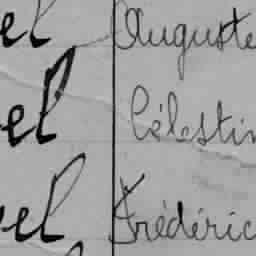 el Auguste
el Célestin
el Frédéric